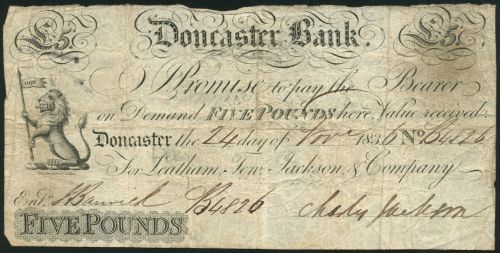 £5. Doncaster Bank. £5.
I Promise to pay the Bearer
on Demand FIVE POUNDS here, Value received.
Doncaster the 24 day of Novr 1836 No B4826
For Leatham, Tew, Jackson, & Company
Entd. B4826 Charles Jackson
FIVE POUNDS